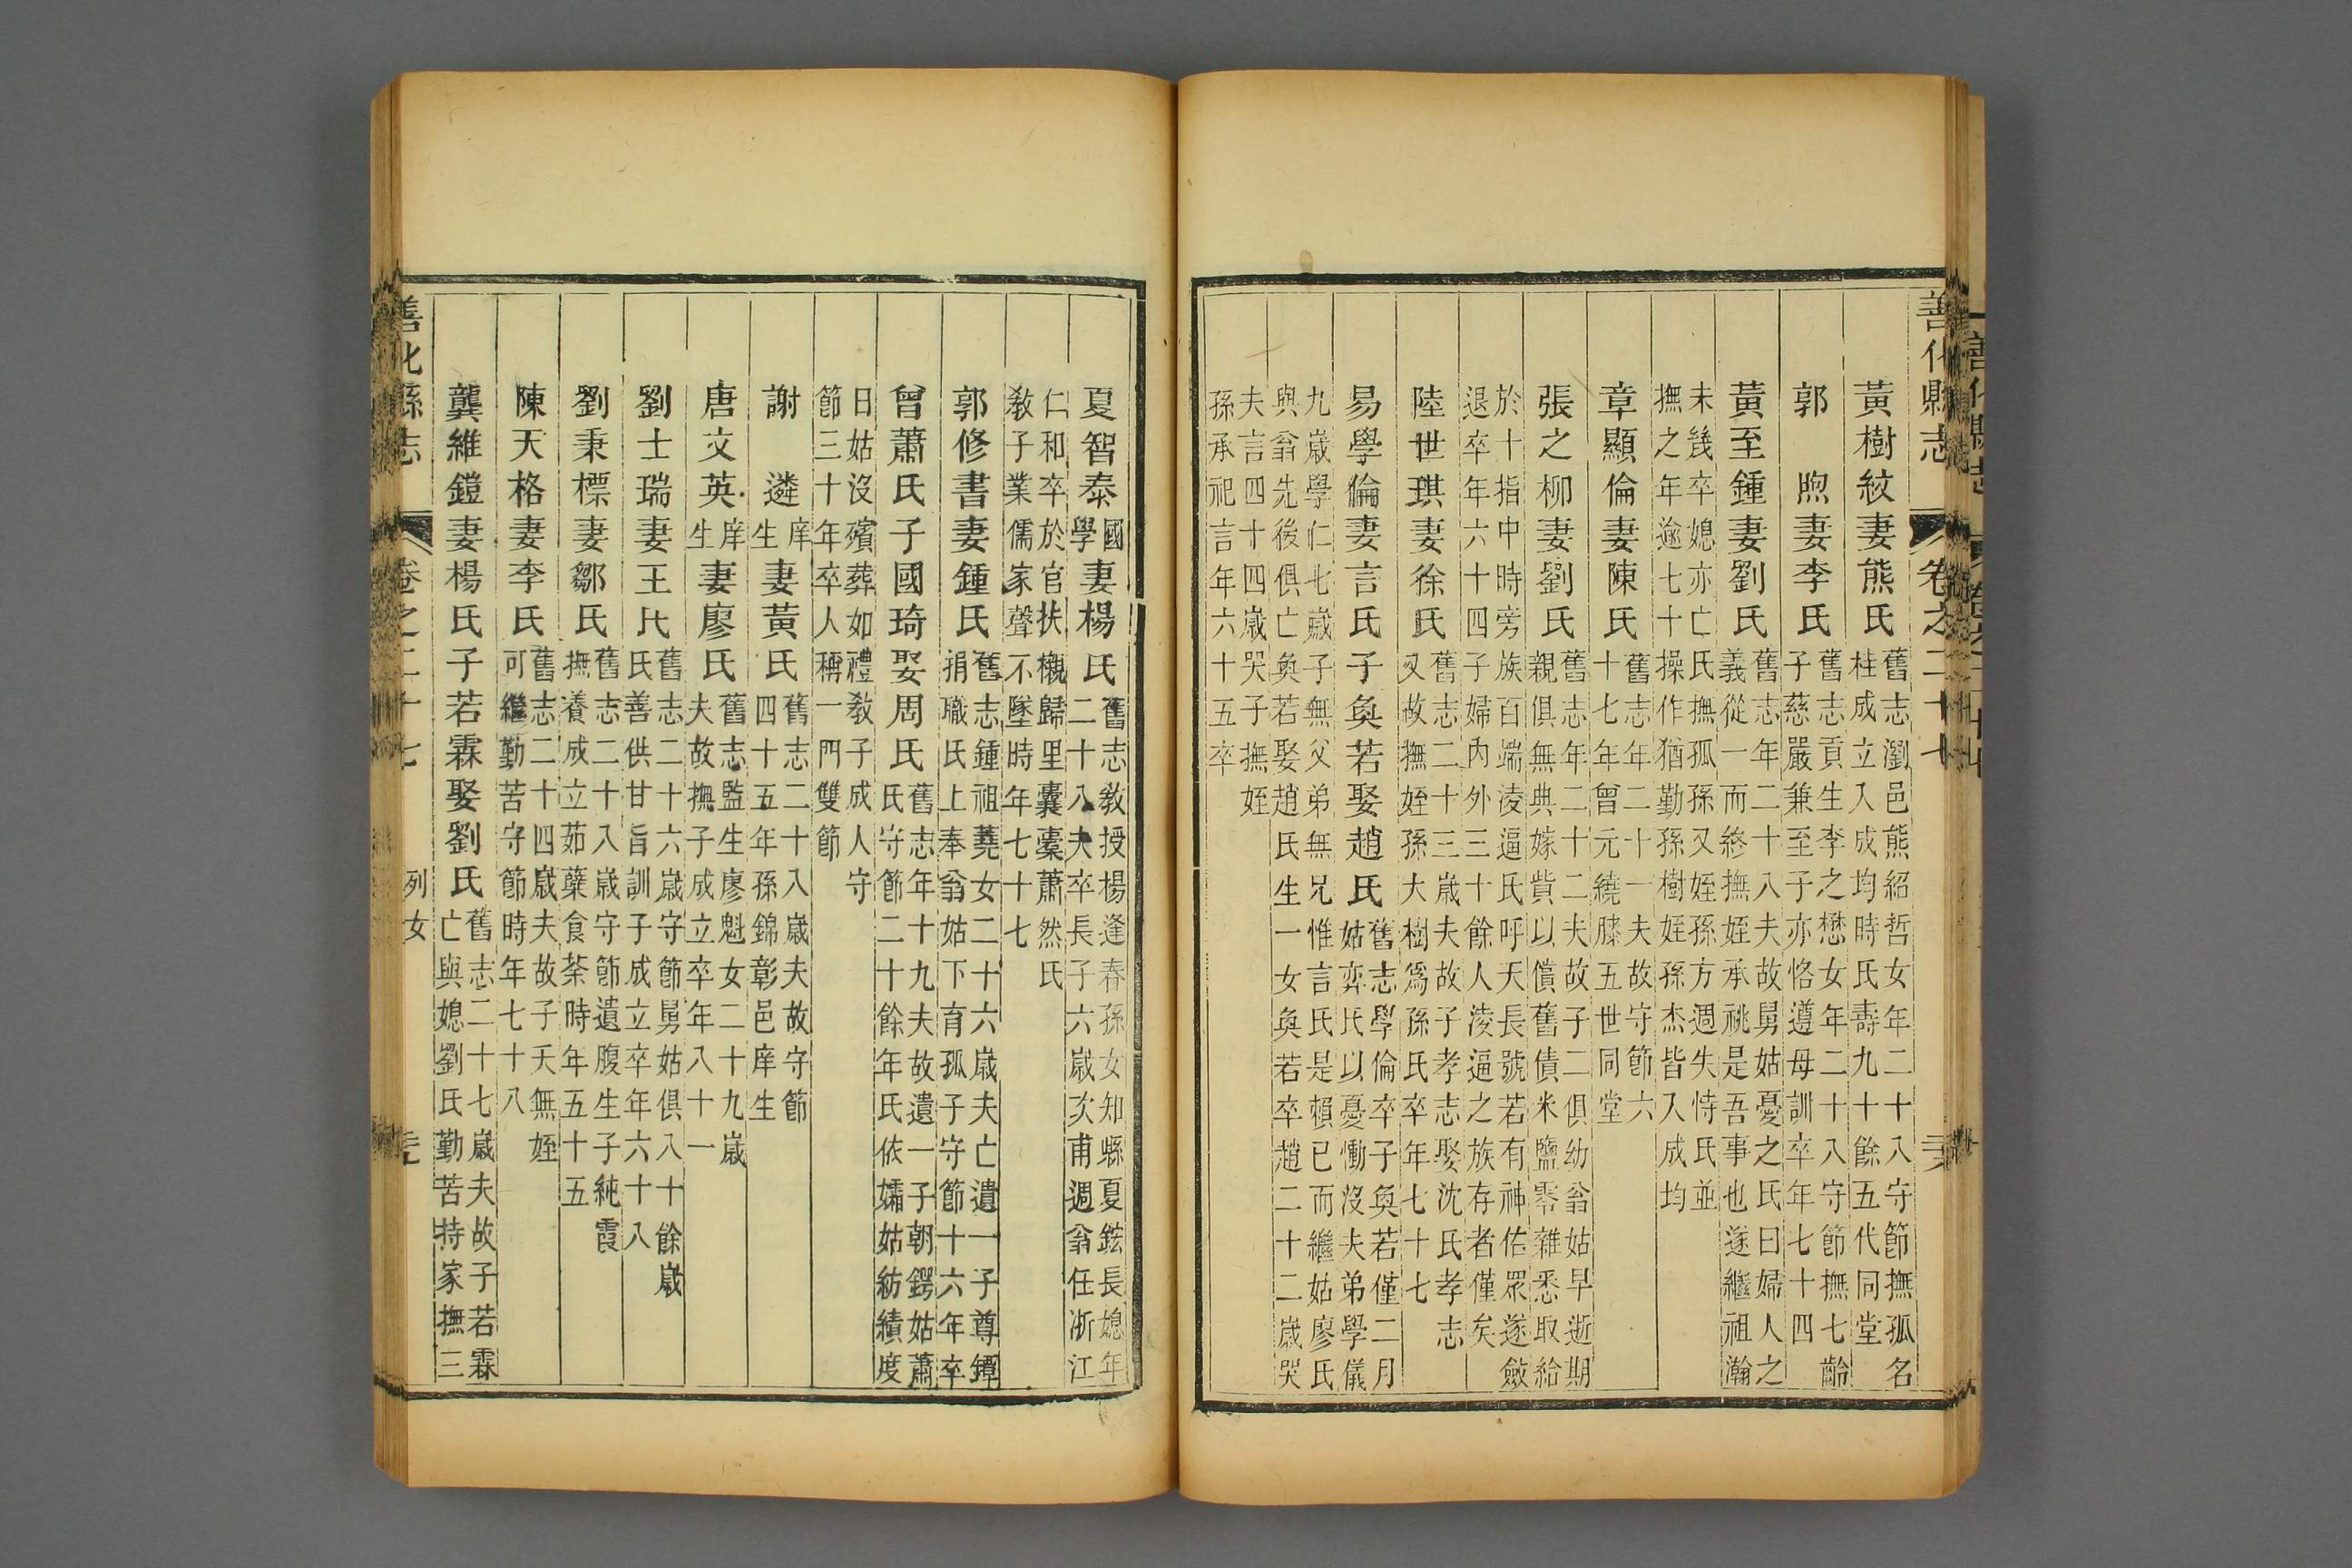 善化縣志 卷之二十七
黃樹紋妻熊氏 舊志瀏邑熊紹哲女年二十八守節撫孤名
桂成立入成均時氏壽九十餘五代同堂
郭 煦妻李氏 舊志貢生李之懋女年二十八守節撫七齡
子慈嚴兼至子亦恪遵母訓卒年七十四
黃至鍾妻劉氏 舊志年二十八夫故舅姑憂之氏曰婦人之
義從一而終撫姪承祧是吾事也遂繼祖瀚
未幾卒媳亦亡氏撫孤孫又姪孫方週失恃氏並
撫之年逾七十操作猶勤孫樹姪孫杰皆入成均
章顯倫妻陳氏 舊志年二十一夫故守節六
十七年曾元繞膝五世同堂
張之柳妻劉氏 舊志年二十二夫故子二俱幼翁姑早逝期
親俱無典嫁貲以償舊債米鹽零雜悉取給
於十指中時旁族百端淩逼氏呼天長號若有神佑眾遂斂
退卒年六十四子婦內外三十餘人淩逼之族存者僅矣
陸世琪妻徐氏 舊志二十三歲夫故子孝志娶沈氏孝志
又故撫姪孫大樹爲孫氏卒年七十七
易學倫妻言氏子奐若娶趙氏 舊志學倫卒子奐若僅二月
姑弈氏以憂慟沒夫弟學儀
九歲學仁七歲子無父弟無兄惟言氏是賴已而繼姑廖氏
與翁先後俱亡奐若娶趙氏生一女奐若卒趙二十二歲哭
夫言四十四歲哭子撫姪
孫承祀言年六十五卒
夏智泰國學妻楊氏 舊志教授楊逢春孫女知縣夏鋐長媳年
二十八夫卒長子六歲次甫週翁任浙江
仁和卒於官扶櫬歸里囊橐蕭然氏
教子業儒家聲不墜時年七十七
郭修書妻鍾氏 舊志鍾祖蕘女二十六歲夫亡遺一子尊鐔
捐職氏上奉翁姑下育孤子守節十六年卒
曾蕭氏子國琦娶周氏 舊志年十九夫故遺一子朝鍔姑蕭
氏守節二十餘年氏依孀姑紡績度
日姑沒殯葬如禮教子成人守
節三十年卒人稱一門雙節
謝 遴庠生妻黃氏 舊志二十八歲夫故守節
四十五年孫錦彰邑庠生
唐文英庠生妻廖氏 舊志監生廖魁女二十九歲
夫故撫子成立卒年八十一
劉士瑞妻王氏 舊志二十六歲守節舅姑俱八十餘歲
氏善供甘旨訓子成立卒年六十八
劉秉標妻鄒氏 舊志二十八歲守節遺腹生子純霞
撫養成立茹蘗食荼時年五十五
陳天格妻李氏 舊志二十四歲夫故子夭無姪
可繼勤苦守節時年七十八
龔維鎧妻楊氏子若霖娶劉氏 舊志二十七歲夫故子若霖
亡與媳劉氏勤苦持家撫三
善化縣志 卷之二十七 列女